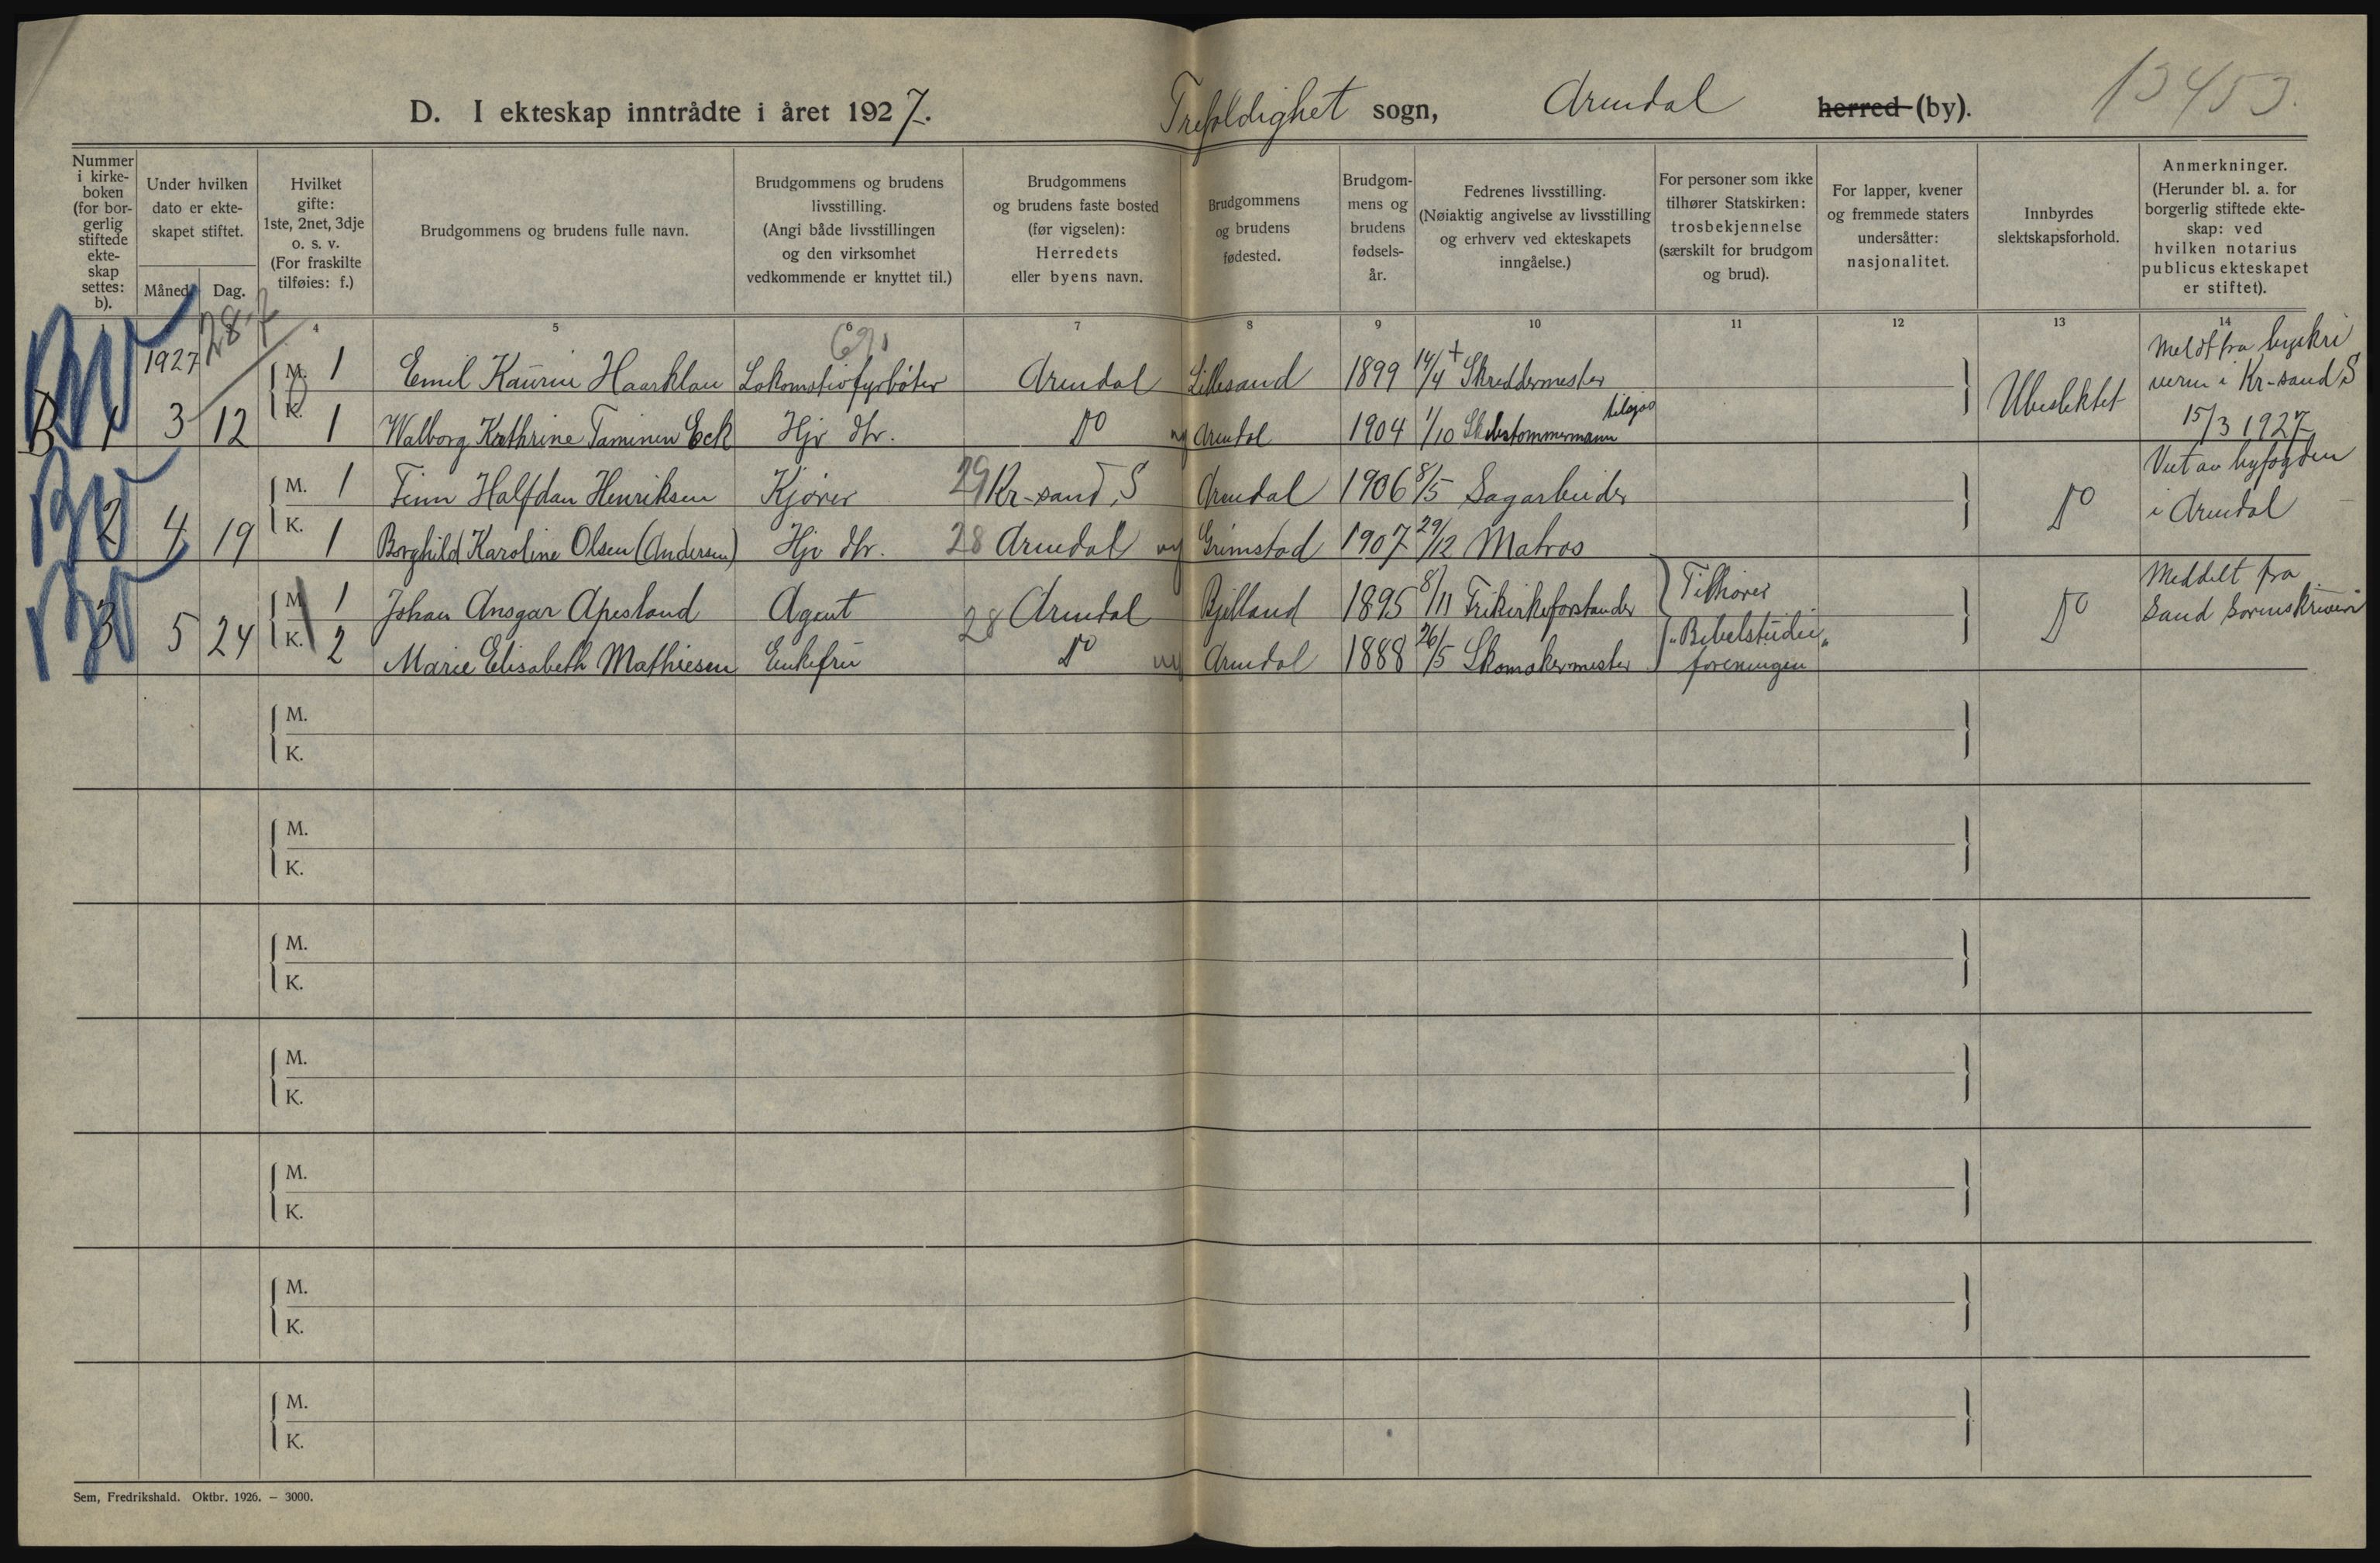 D. I ekteskap inntrådte i året 1927.
Trefoldighet sogn, Arendal herred (by).
13453.
Nummer i kirke-boken (for bor-gerlig stiftede ekte-skap settes: b).
Under hvilken dato er ekte-skapet stiftet.
Måned. Dag.
Hvilket gifte: 1ste, 2net, 3dje o. s. v. (For fraskilte tilføies: f.)
Brudgommens og brudens fulle navn.
Brudgommens og brudens livsstilling. (Angi både livsstillingen og den virksomhet vedkommende er knyttet til.)
Brudgommens og brudens faste bosted (før vigselen): Herredets eller byens navn.
Brudgommens og brudens fødested.
Brudgom-mens og brudens fødsels-år.
Fedrenes livsstilling. (Nøiaktig angivelse av livsstilling og erhverv ved ekteskapets inngåelse.)
For personer som ikke tilhører Statskirken: trosbekjennelse (særskilt for brudgom og brud).
For lapper, kvener og fremmede staters undersåtter: nasjonalitet.
Innbyrdes slektskapsforhold.
Anmerkninger. (Herunder bl. a. for borgerlig stiftede ekte-skap: ved hvilken notarius publicus ekteskapet er stiftet).
4 5 6 7 8 9 10 11 12 13 14
1927 28
M. 1 Emil Kaurin Haarklau Lokomotivfyrbøter Arendal Lillesand 1899 14/4 + Skreddermester
Meldt fra byskri
veren i Kr-sand S
15/3 1927
B 1 3 12 K. 1 Walborg Kathrine Taminen Eck Hjv dtr. Do Arendal 1904 1/10 Skibstømmermann Ubeslektet
M. 1 Finn Halfdan Henriksen Kjører 29 Kr-sand S Arendal 1906 8/5 Sagarbeider
Viet av byfogden
i Arendal
2 4 19 K. 1 Borghild Karoline Olsen (Andersen) Hjv dtr. 28 Arendal Grimstad 1907 29/12 Matros Do
M. 1 Johan Ansgar Apesland Agent 28 Arendal Bjelland 1895 8/11 Frikirkeforstander Tilhører
Meddelt fra
Sand Sorenskriveri
3 5 24 K. 2 Marie Elisabeth Mathiesen Enkefru Do Arendal 1888 26/5 Skomakermester "Bibelstudie
foreningen" Do
M.
K.
M.
K.
M.
K.
M.
K.
M.
K.
M.
K.
M.
K.
Sem, Fredrikshald. Oktbr. 1926. — 3000.